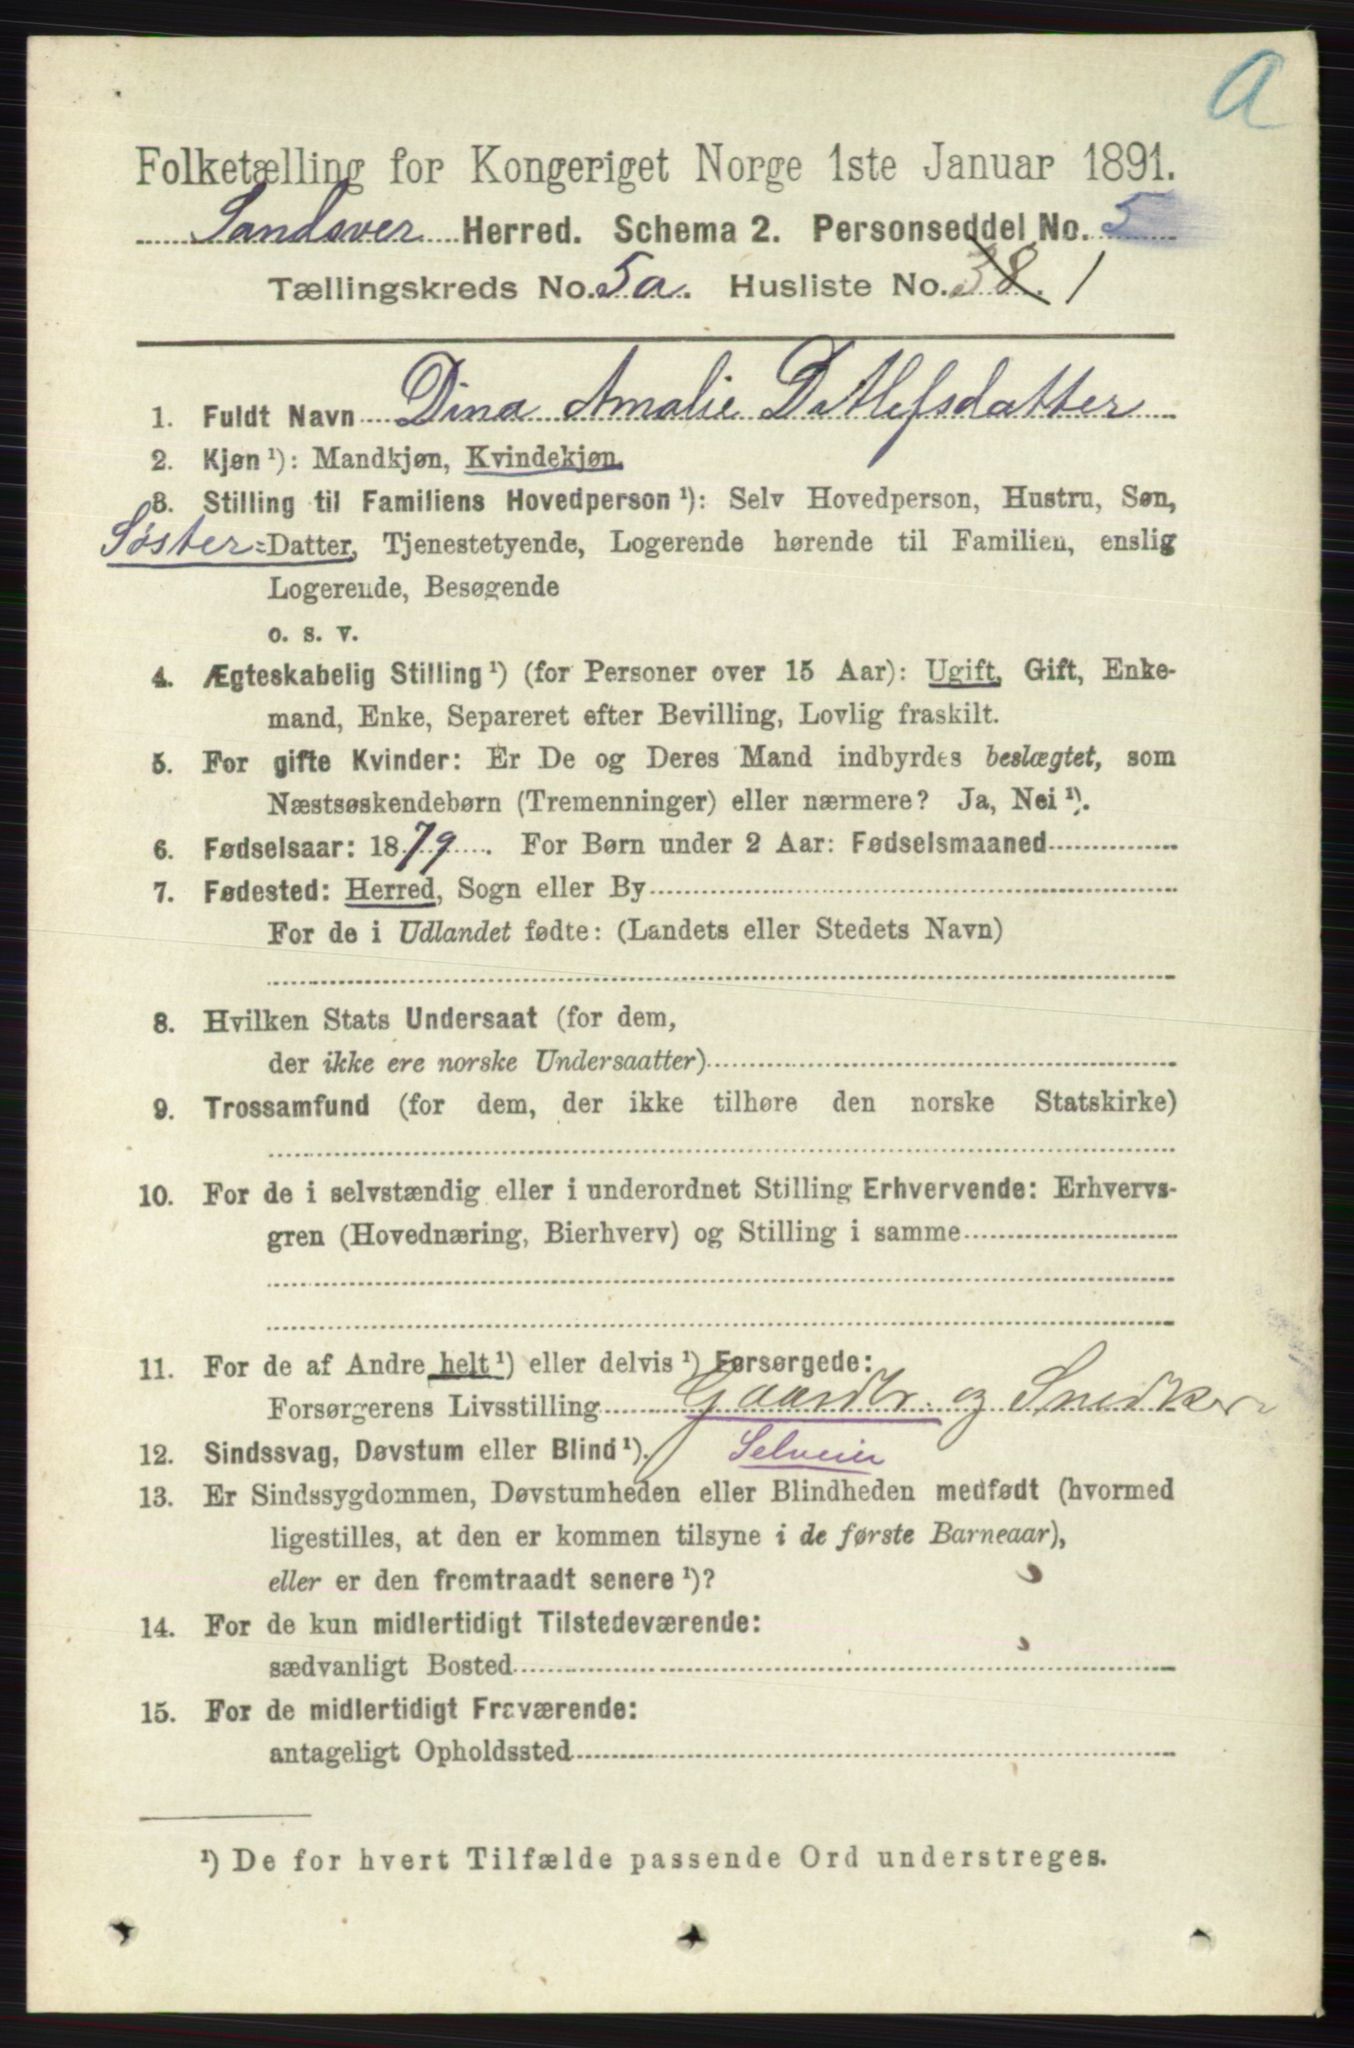 a
Folketælling for Kongeriget Norge 1ste Januar 1891.
Sandsver Herred. Schema 2. Personseddel No. 5
Tællingskreds No. 5a. Husliste No. 38. 1
1. Fuldt Navn Dina Amalie Ditlefsdatter
2. Kjøn¹): Mandkjøn, Kvindekjøn.
3. Stilling til Familiens Hovedperson¹): Selv Hovedperson, Hustru, Søn,
Søster=Datter, Tjenestetyende, Logerende hørende til Familien, enslig
Logerende, Besøgende
o. s. v.
4. Ægteskabelig Stilling¹) (for Personer over 15 Aar): Ugift, Gift, Enke-
mand, Enke, Separeret efter Bevilling, Lovlig fraskilt.
5. For gifte Kvinder: Er De og Deres Mand indbyrdes beslægtet, som
Næstsøskendebørn (Tremenninger) eller nærmere? Ja, Nei¹).
6. Fødselsaar: 1879. For Børn under 2 Aar: Fødselsmaaned
7. Fødested: Herred, Sogn eller By
For de i Udlandet fødte: (Landets eller Stedets Navn)
8. Hvilken Stats Undersaat (for dem,
der ikke ere norske Undersaatter)
9. Trossamfund (for dem, der ikke tilhøre den norske Statskirke)
10. For de i selvstændig eller i underordnet Stilling Erhvervende: Erhvervs-
gren (Hovednæring, Bierhverv) og Stilling i samme
11. For de af Andre helt¹) eller delvis¹) Forsørgede:
Forsørgerens Livsstilling Gaardbr. og Snedker
12. Sindssvag, Døvstum eller Blind¹). Selveier
13. Er Sindssygdommen, Døvstumheden eller Blindheden medfødt (hvormed
ligestilles, at den er kommen tilsyne i de første Barneaar),
eller er den fremtraadt senere¹)?
14. For de kun midlertidigt Tilstedeværende:
sædvanligt Bosted
15. For de midlertidigt Fraværende:
antageligt Opholdssted
¹) De for hvert Tilfælde passende Ord understreges.